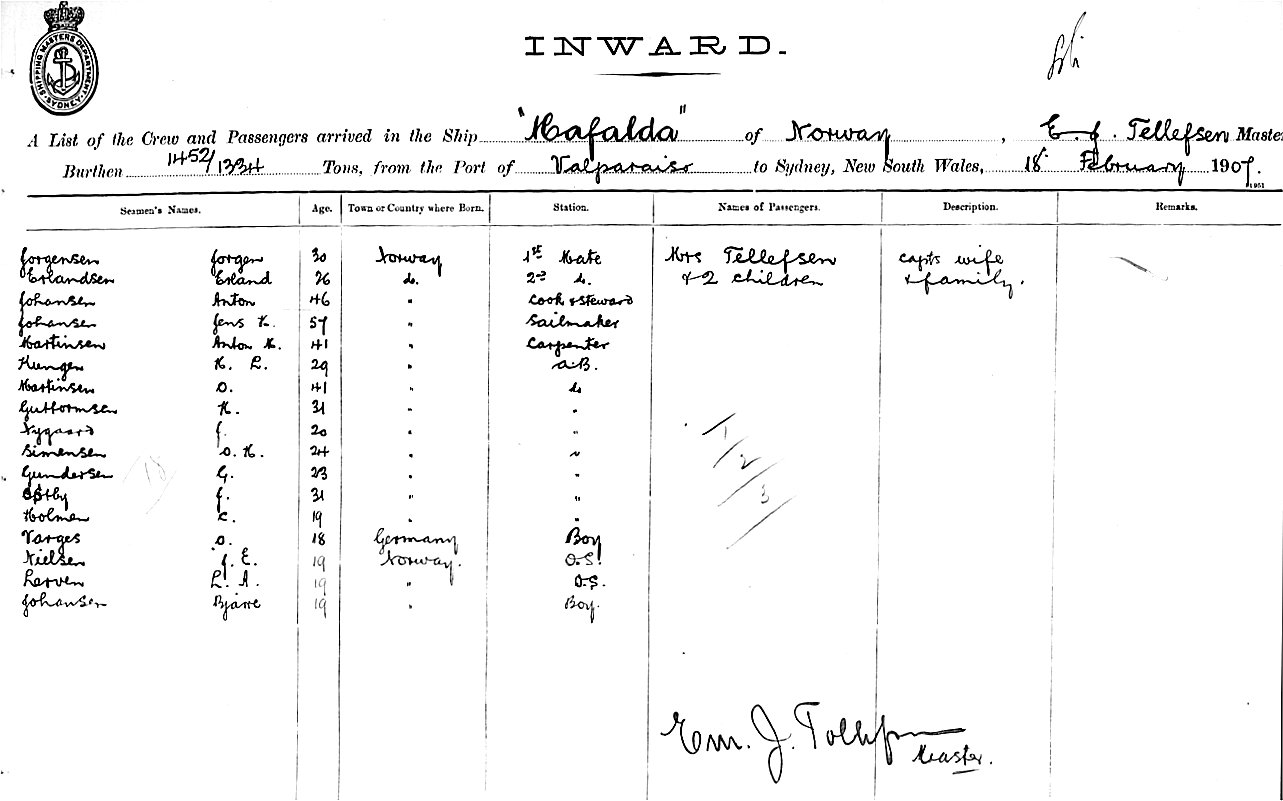 SHIPPING MASTERS DEPARTMENT SYDNEY
INWARD.
A List of the Crew and Passengers arrived in the Ship "Mafalda" of Norway, E. J. Tellefsen Maste
Burthen 1452/1334 Tons, from the Port of Valparaiso to Sydney, New South Wales, 18 February 1907.
1951
Seamen's Names. Age. Town or Country where Born. Station. Names of Passengers. Description. Remarks.
Jorgensen Jorgen 30 Norway 1st Mate Mrs Tellefsen capts wife
Erlandsen Erland 26 do. 2nd do. & 2 children & family.
Johansen Anton 46 " Cook & Steward
Johansen Jens H. 57 " Sailmaker
Martinsen Anton M. 41 " Carpenter
H. L. 29 " A.B.
Martinsen O. 41 " do
Guttormsen H. 31 " "
Nygaard J. 20 " "
Simensen O. H. 24 " "
Gundersen G. 23 " "
Østby J. 31 " "
Holmen C. 19 " "
Varges O. 18 Germany Boy
Nielsen J. E. 19 Norway. O.S.
Larven L. A. 19 " O.S.
Johansen Bjarre 19 " Boy.
18
1
2
3
Em. J. Tellefsen
Master.